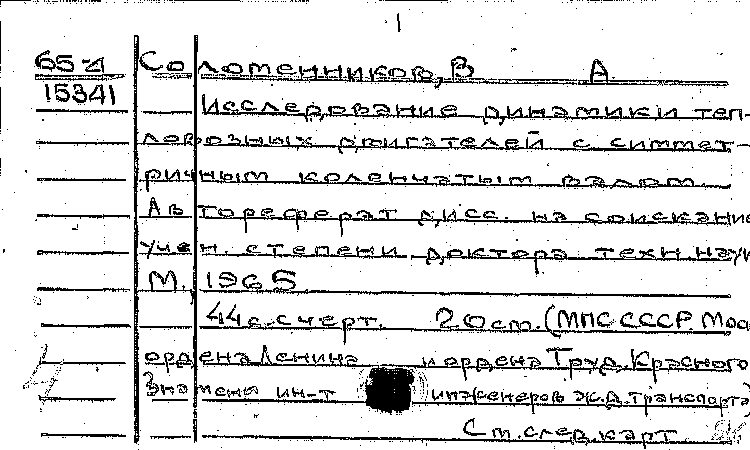 1
65-4 Соломенников, В А.
15341 Исследование динамики теп-
ловозных двигателей с симмет-
ричным коленчатым валом
Автореферат дисс. на соискание
учен. степени доктора техн. наук
М., 1965
44 с. с черт. 20 см. (МПС СССР. Мос
ордена Ленина и ордена Труд. Красного
Знамени ин-т инженеров ж.д. транспорта)
См. след. карт.